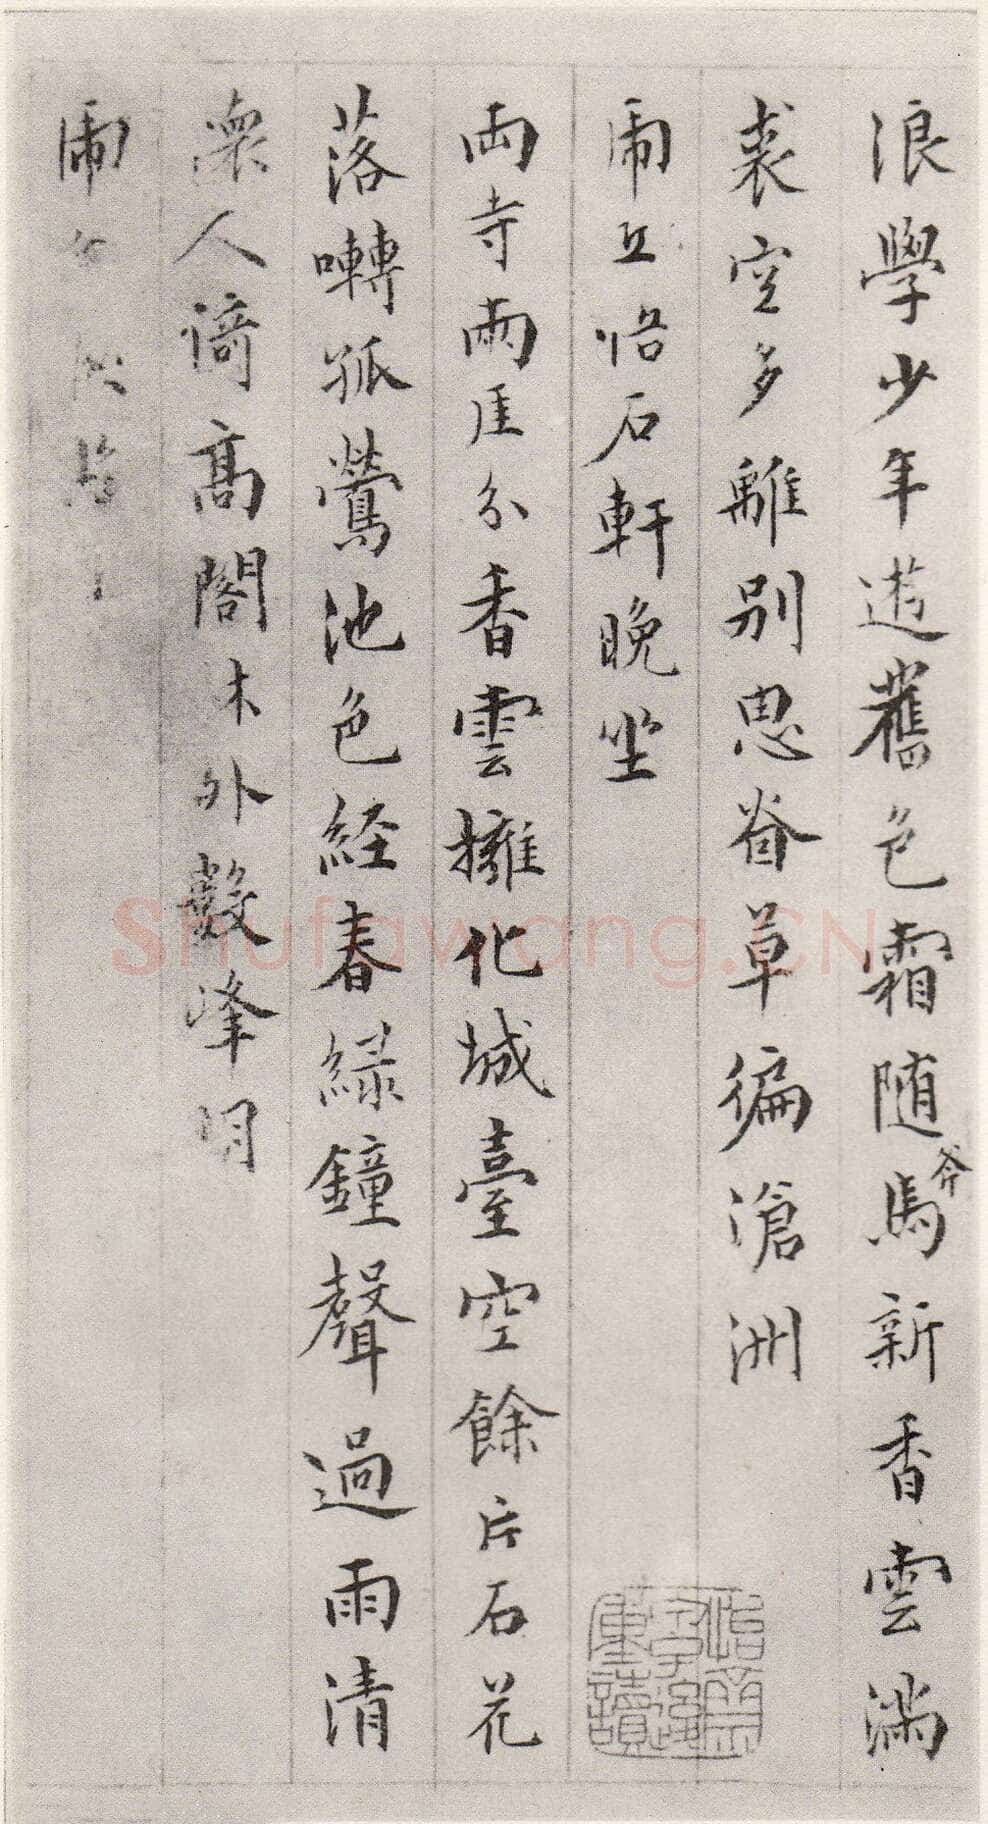 浪學少年遊舊色霜随馬新香雲滿
斧
裘空多離别思眘草徧滄洲
虎丘悟石軒晚坐
两寺兩厓分香雲擁化城臺空餘片石花
落囀孤鶯池色経春緑鐘聲過雨清
人倚高閣木外數峰明
虎
Shufawang.CN